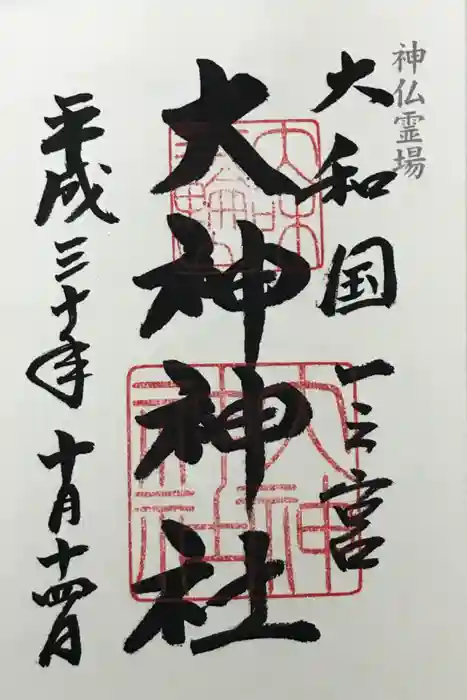 神仏霊場
大和国一之宮
大神神社
平成三十年十月十四日